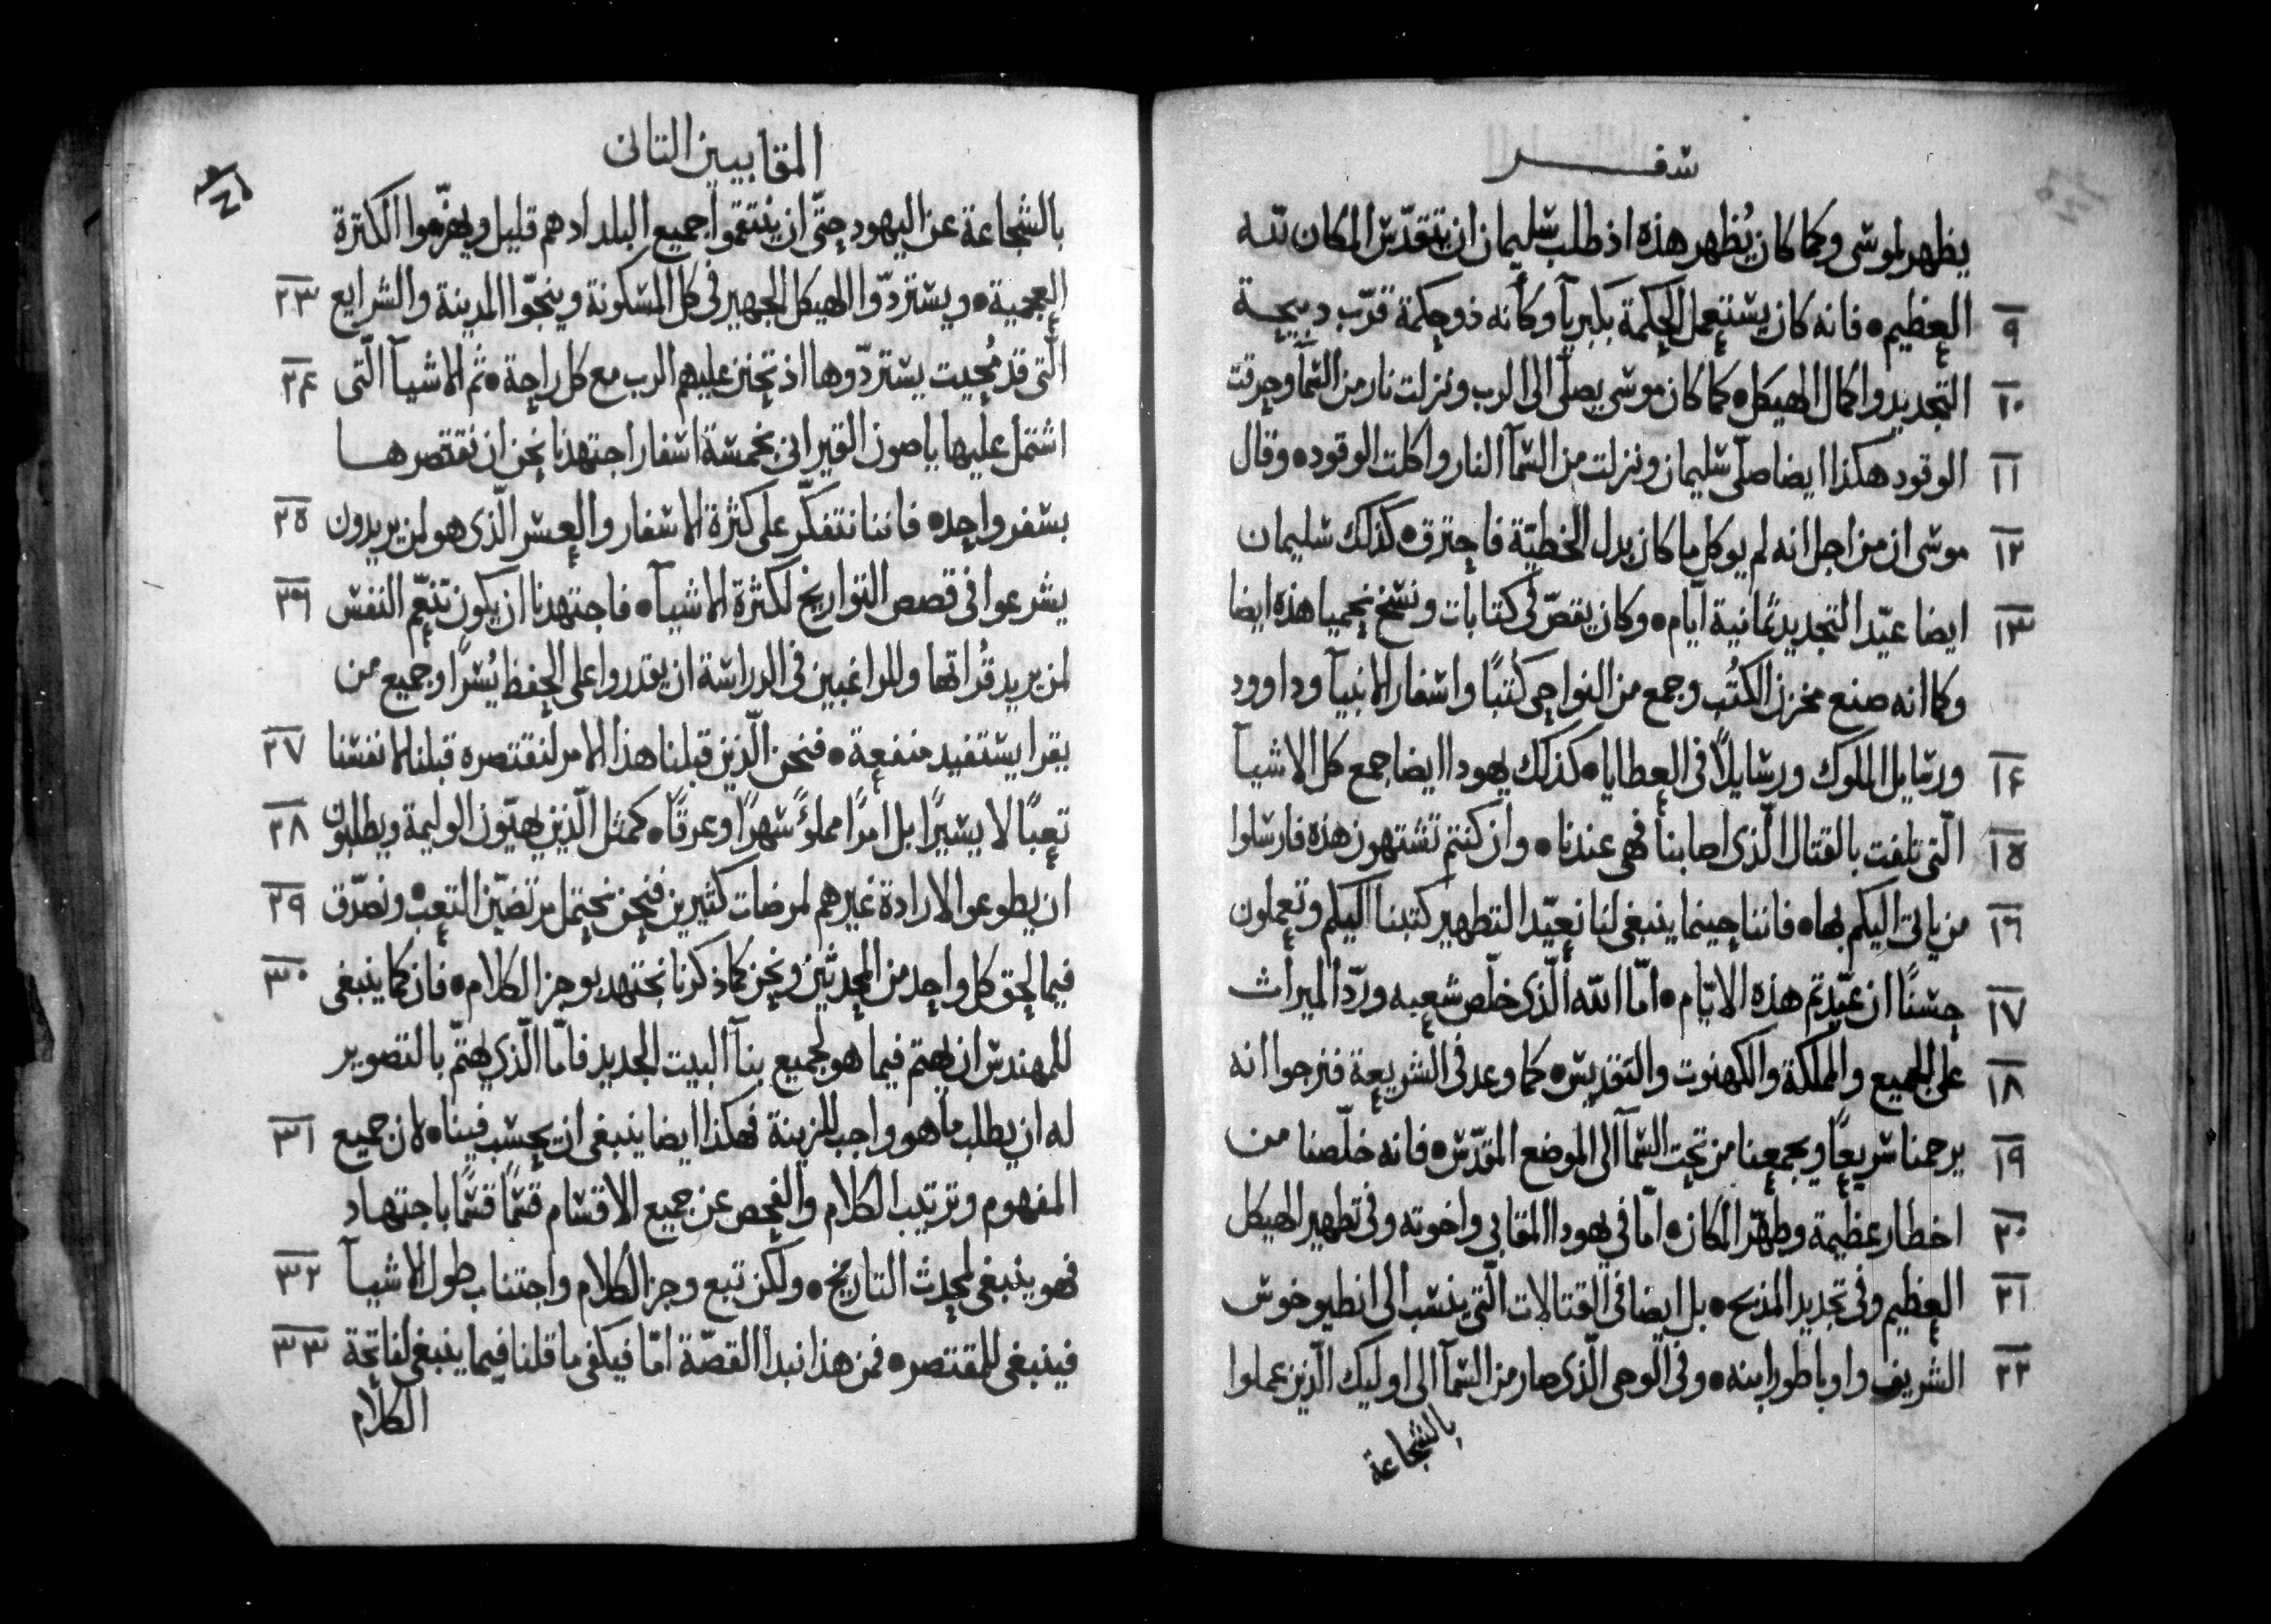 سفر
يظهر لموسى وكما كان يُظهر هذه اذ طلب سليمان ان يتقدّس المكان لله
٩ العظيم • فانه كان يستعمل الحكمة بكبرياً وكأنه ذو حكمة قرّب دبيحة
١٠ التجديد واكمال الهيكل • كما كان موسى يصلّى الى الرب ونزلت نار من السمآ وحرقت
١١ الوقود هكذا ايضا صلّى سليمان ونزلت من السمآ النار واكلت الوقود • وقال
١٢ موسى ان من اجل انه لم يوكل ما كان بدل الخطيّة فاحترق • كذلك سليمان
١٣ ايضا عيّد التجديد ثمانية آيام • وكان يقصّ في كتابات ونسخ نحميا هذه ايضا
وكما انه صنع مخزن الكتُب وجمع من النواحى كتبًا واسفار الانبيآ وداوود
١٤ ورسايل الملوك ورسايلاً فى العطايا • كذلك يهودا ايضا جمع كل الاشيآ
١٥ الّتى تلفت بالقتال الّذى اصابنا فهى عندنا • وان كنتم تشتهون هذه فارسلوا
١٦ من ياتى اليكم بها • فاننا حينما ينبغى لنا نعيّد التطهير كتبنا اليكم وتعملون
١٧ حسنًا ان عيّدتم هذه الايّام • امّا الله الّذى خلّص شعبه وردّ الميراث
١٨ على الجميع والمملكة والكهنوت والتقديس • كما وعد فى الشريعة فنرجوا انه
١٩ يرحمنا سريعًا ويجمعنا من تحت السمآ الى الموضع المقدّس • فانه خلّصنا من
٢٠ اخطار عظيمة وطهّر المكان • امّا في يهودا المقابى واخوته وفى تطهير الهيكل
٢١ العظيم وفى تجديد المذبح • بل ايضا فى القتالات الّتى ينسب الى انطيوخوس
٢٢ الشريف واوباطور ابنه • وفى الوحى الّذى صار من السمآ الى اوليك الّذين عملوا
بالشجاعة
المقابيين التانى
بالشجاعة عن اليهود حتّى ان ينتقموا جميع البلد اد هم قليل ويهزّموا الكترة
٢٣ العجمية • ويستردّوا الهيكل الجهير فى كل المسكونة وينجّوا المدينة والشرايع
٢٤ الّتى قد مُحيت يستردّوها اذ تحنن عليهم الرب مع كل راحة • ثم الاشيآ الّتى
اشتمل عليها ياصون القيرانى بخمسة اسفار اجتهدنا نحن ان نقتصرها
٢٥ بسفر واحد • فاننا نتفكّر على كثرة الاسفار والعسر الّذى هو لمن يريدون
٢٦ يشرعوا فى قصص التواريخ لكثرة الاشيآ • فاجتهدنا ان يكون تنعّم النفس
لمن يريد قُراتها وللراغبين فى الدراسة ان يقدروا على الحفظ يُسرًا وجميع من
٢٧ يقرا يستفيد منفعة • فنحن الّذين قبلنا هذا الامر لنقتصره قبلنا لانفسنا
٢٨ تعبًا لا يسيرًا بل امرًا مملوءً سهرًا وعرقًا • كمثل الّذين يهيّون الوليمة ويطلبون
٢٩ ان يطوعوا لارادة غيرهم لمرضات كثيرين فنحن نحتمل مرتضيّن التعب • ونصدّق
٣٠ فيما لحق كل واحد من المحدثين ونحن كما ذكرنا نجتهد بوجز الكلام • فان كما ينبغى
للمهندس ان يهتم فيما هو لجميع بنآ البيت الجديد فامّا الّذي يهتمّ بالتصوير
٣١ له ان يطلب ما هو واجب للزينة فهكذا ايضا ينبغى ان يحسب فينا • لان جميع
المفهوم وترتيب الكلام والفحص عن جميع الاقسام قسمًا قسمًا باجتهاد
٣٢ فهو ينبغى لمحدث التاريخ • ولكن تبع وجز الكلام واجتناب طول الاشيآ
٣٣ فينبغى للمقتصر • فمن هذا نبدا القصّة امّا فيكفى ما قلنا فيما ينبغى لفاتحة
الكلام